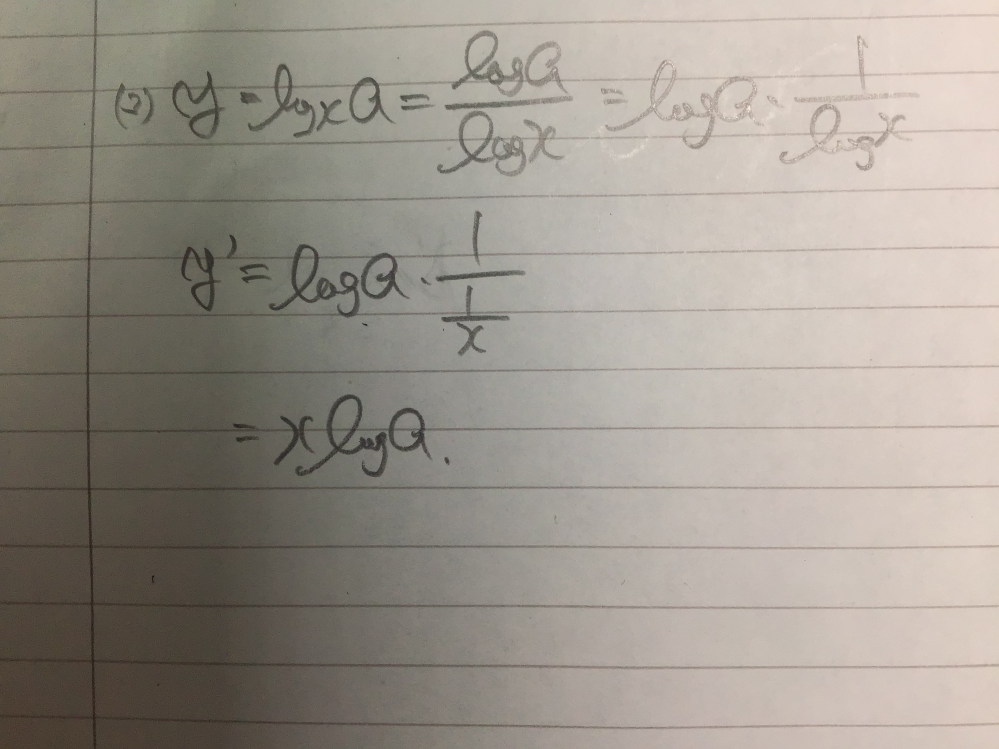 (2) y = log_x a = \frac{log a}{log x} = log a · \frac{1}{log x}
y' = log a · \frac{1}{\frac{1}{x}}
= x log a.